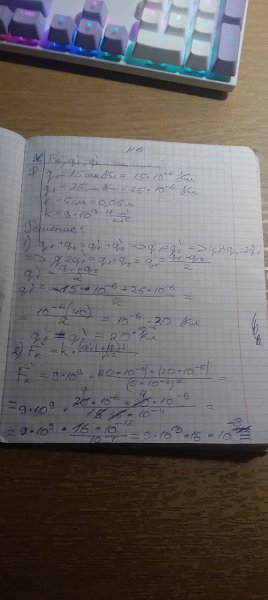 №6
Fк, q₁, q₂
q₁ = 15 мкКл = 15·10⁻⁶ Кл
q₂ = 25 мкКл = 25·10⁻⁶ Кл
r = 5 см = 0,05 м
k = 9·10⁹ Н·м²/Кл²
Решение:
1) q₁ + q₂ = q₁' + q₂' => q₁' = q₂' => q₁ + q₂ = 2q₁'
=> 2q₁' = q₁ + q₂ => q₁' = (q₁+q₂)/2
q₁' = (q₁+q₂)/2
q₁' = (15·10⁻⁶ + 25·10⁻⁶)/2 =
= 10⁻⁶(40)/2 = 10⁻⁶·20 Кл
q₁' = q₂' = 20 Кл
2) Fк' = k · |q₁'|·|q₂'|/r²
Fк' = 9·10⁹ · |20·10⁻⁶|·|20·10⁻⁶|/(5·10⁻²)² =
= 9·10⁹ · 20·10⁻⁶ · 20·10⁻⁶/10⁻⁴ =
= 9·10⁹ · 16·10⁻¹²/10⁻⁴ = 9·10⁹·16·10